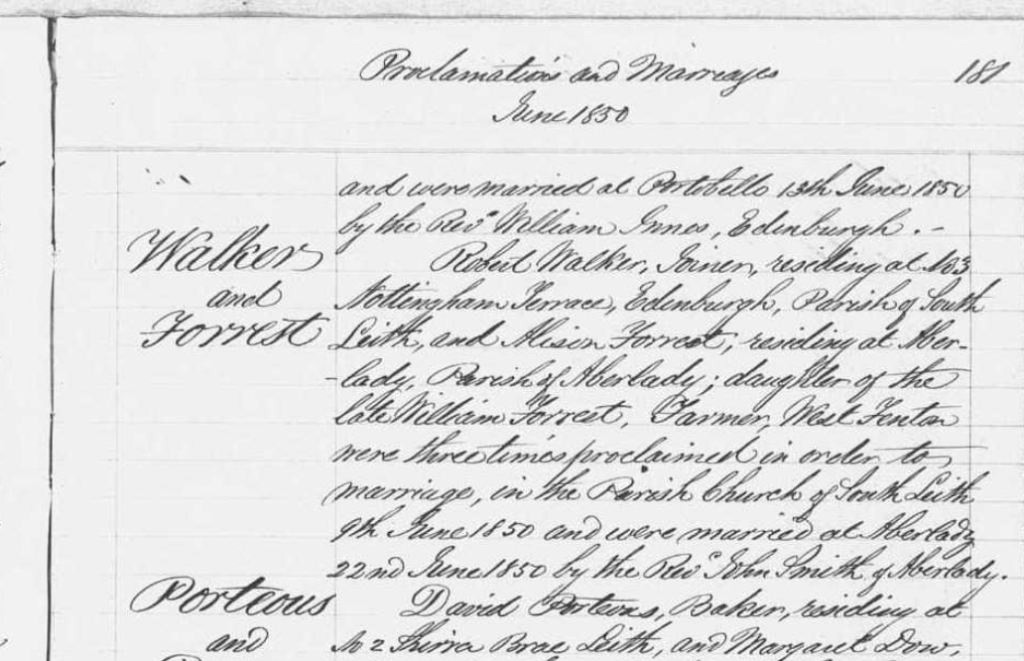 Proclamations and Marriages 181
June 1850
and were married at Portobello 13th June 1850
by the Revd William Innes, Edinburgh. -
Walker
and
Forrest
Robert Walker, Joiner, residing at No 3
Nottingham Terrace, Edinburgh, Parish of South
Leith, and Alison Forrest, residing at Aber-
-lady, Parish of Aberlady; daughter of the
late William Forrest, Farmer, West Fenton
were three times proclaimed in order to
marriage, in the Parish Church of South Leith
9th June 1850 and were married at Aberlady
22nd June 1850 by the Revd John Smith of Aberlady.
Porteous
and
David Porteous, Baker, residing at
No 2 Shirra Brae Leith, and Margaret Dow,